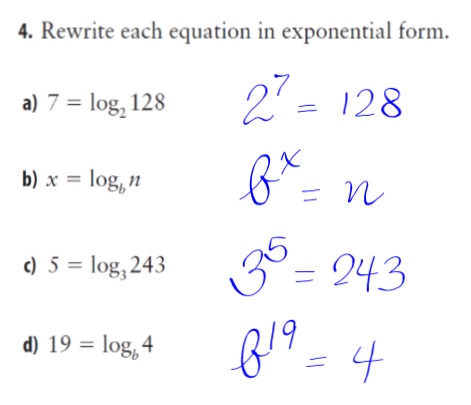 4. Rewrite each equation in exponential form.
a) 7 = log₂ 128 2⁷ = 128
b) x = log_b n b^x = n
c) 5 = log₃ 243 3⁵ = 243
d) 19 = log_b 4 b¹⁹ = 4